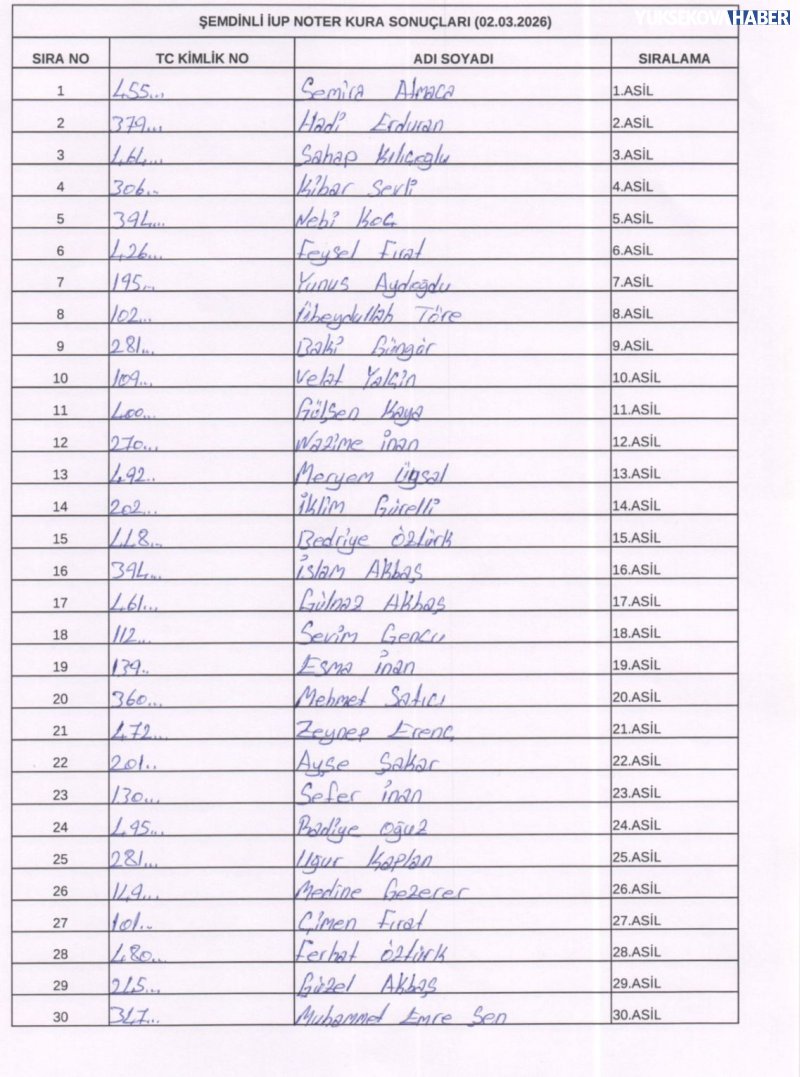 YÜKSEKOVAHABER
ŞEMDİNLİ İUP NOTER KURA SONUÇLARI (02.03.2026)
SIRA NO TC KİMLİK NO ADI SOYADI SIRALAMA
1 455... Semira Almaca 1.ASİL
2 379... Hadi Erduran 2.ASİL
3 464... Sahap Kılıçoğlu 3.ASİL
4 306.. Kibar Sevli 4.ASİL
5 394... Nebi Koç 5.ASİL
6 426... Feysel Fırat 6.ASİL
7 195... Yunus Aydoğdu 7.ASİL
8 102... Übeydullah Töre 8.ASİL
9 281... Baki Güngör 9.ASİL
10 109... Velat Yalçin 10.ASİL
11 400... Gülşen Kaya 11.ASİL
12 270... Nazime İnan 12.ASİL
13 492.. Meryem Ünsal 13.ASİL
14 202... İklim Gürelli 14.ASİL
15 448... Bedriye Öztürk 15.ASİL
16 394... İslam Akbaş 16.ASİL
17 461... Gülnaz Akbaş 17.ASİL
18 112... Sevim Gencu 18.ASİL
19 139.. Esma İnan 19.ASİL
20 360... Mehmet Satıcı 20.ASİL
21 472... Zeynep Erenç 21.ASİL
22 201.. Ayşe Şakar 22.ASİL
23 130... Sefer İnan 23.ASİL
24 495... Badiye Oğuz 24.ASİL
25 281... Uğur Kaplan 25.ASİL
26 149... Medine Gezerer 26.ASİL
27 101... Çimen Fırat 27.ASİL
28 480... Ferhat Öztürk 28.ASİL
29 245... Güzel Akbaş 29.ASİL
30 347... Muhammet Emre Şen 30.ASİL